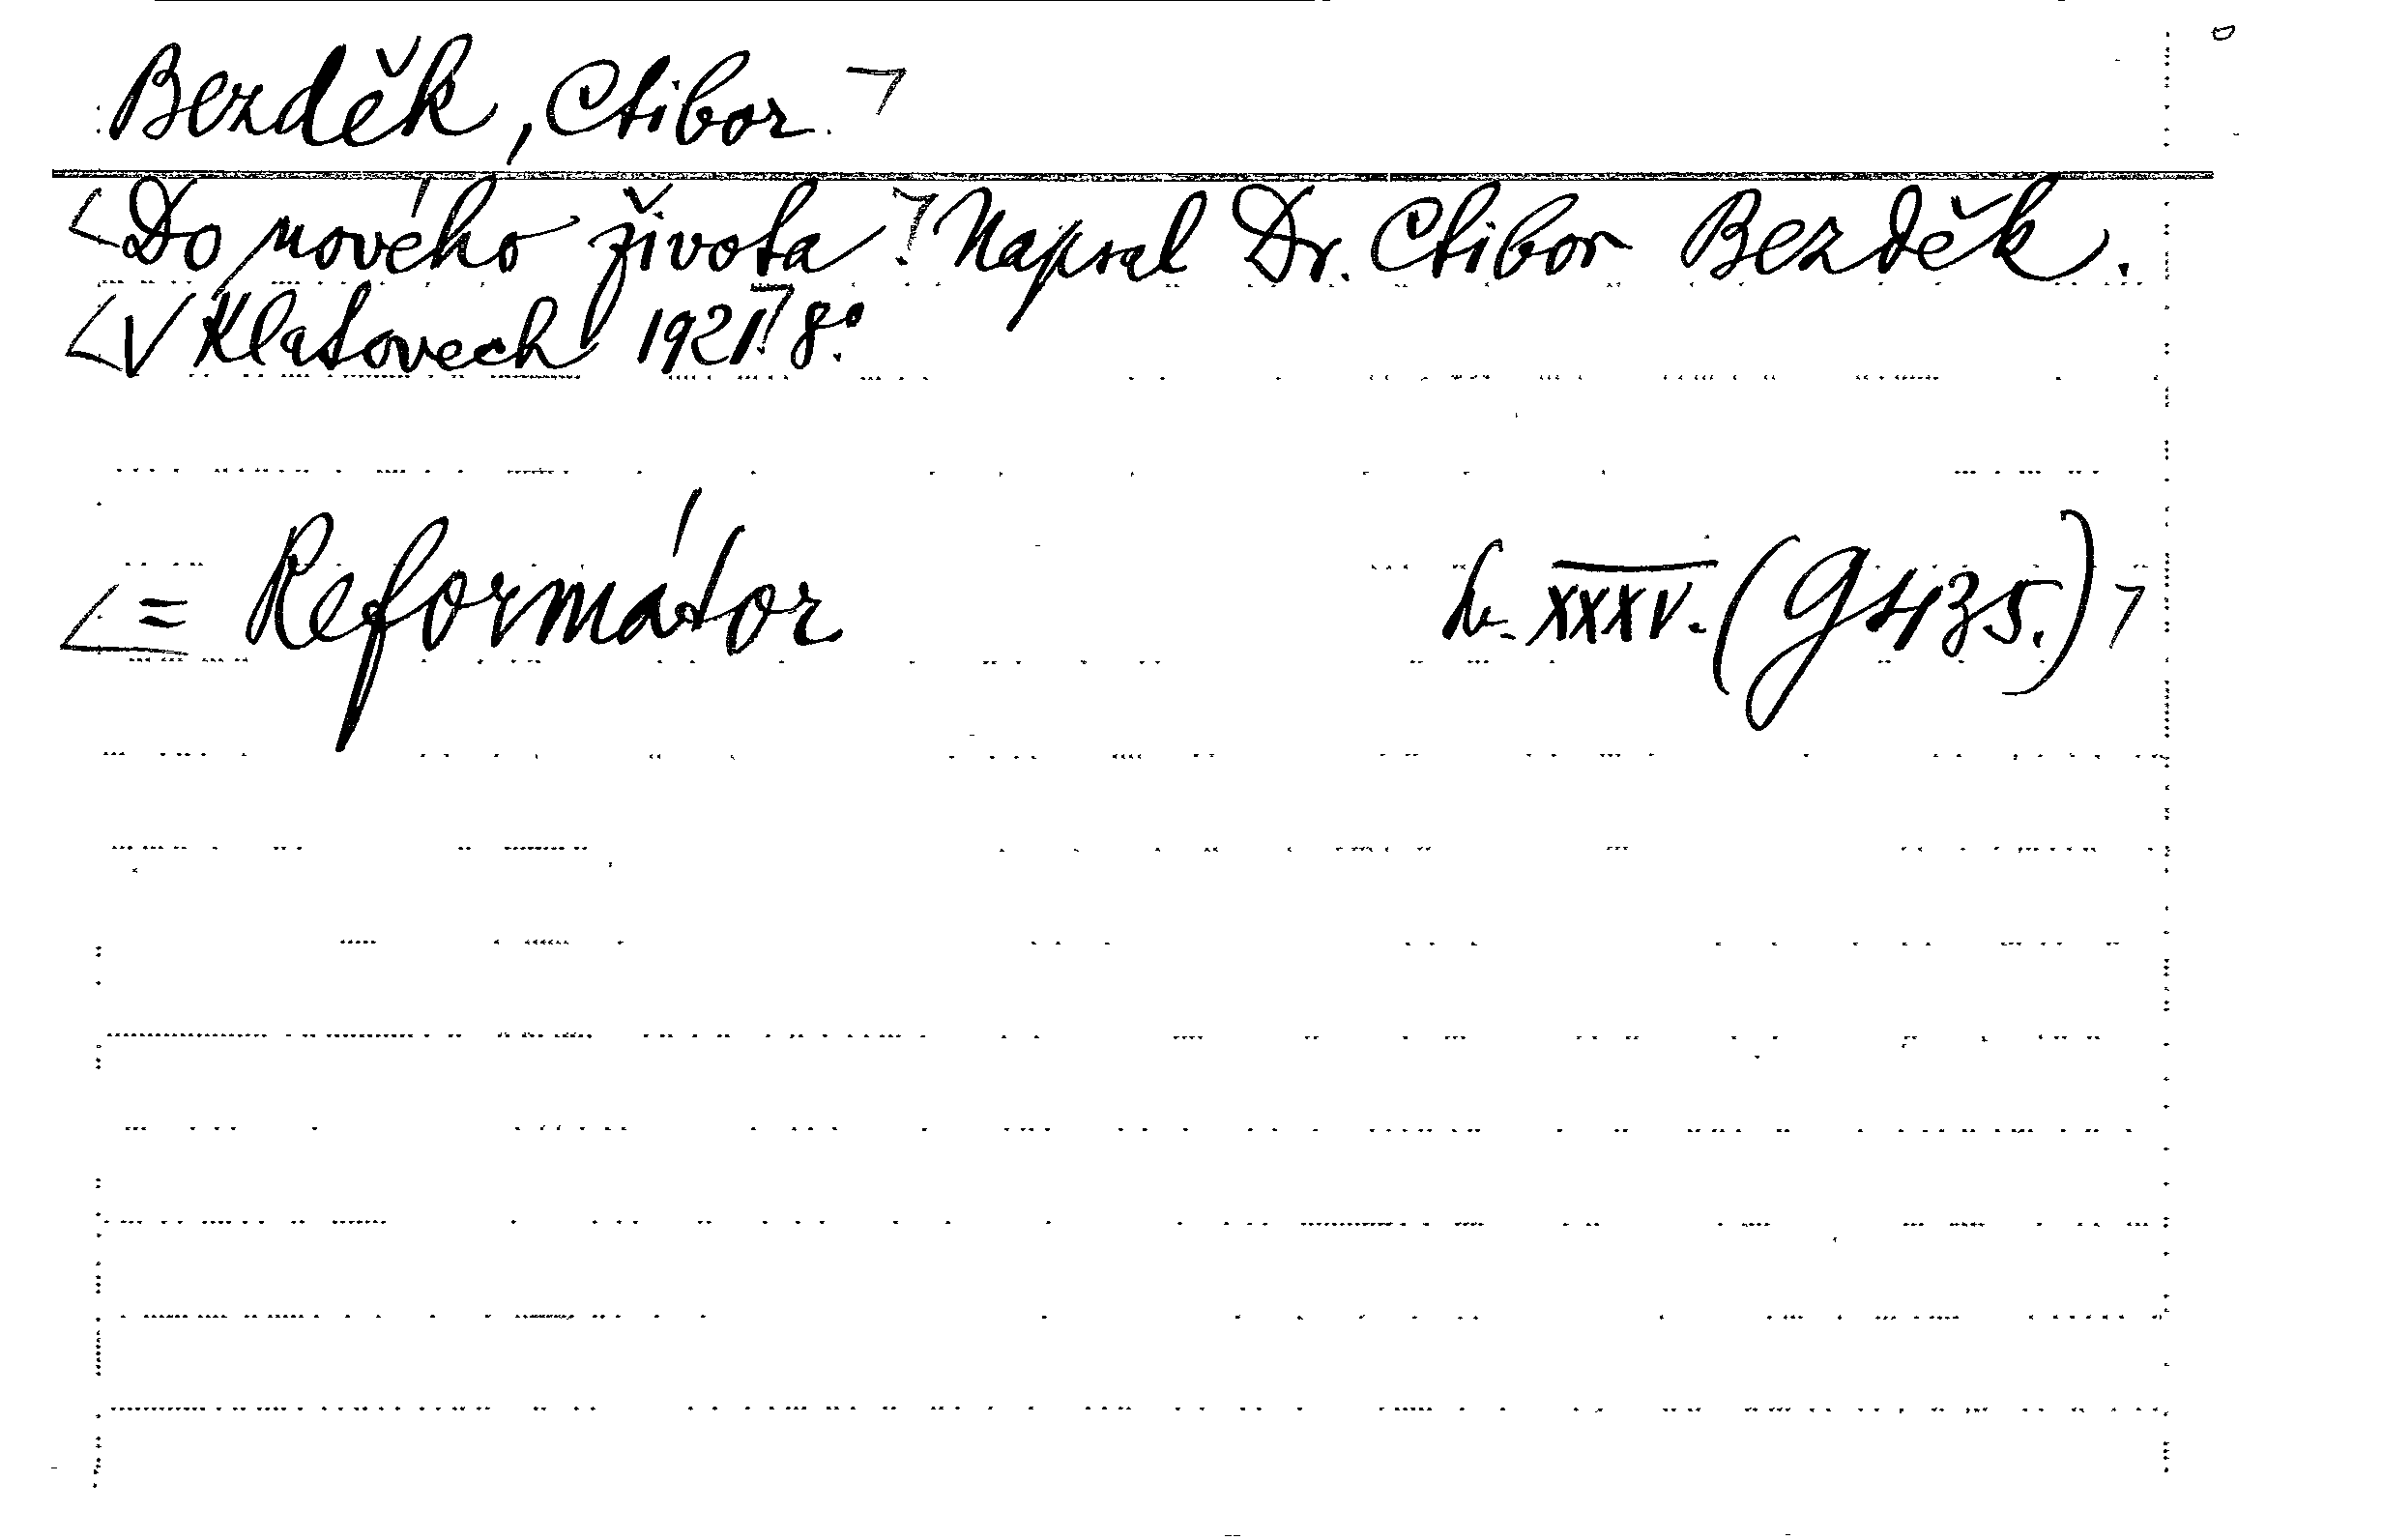 Bezděk, Ctibor.
Do nového života. Napsal Dr. Ctibor Bezděk.
V Klatovech 1921. 8°.
= Reformátor XXXV. (G 435.)